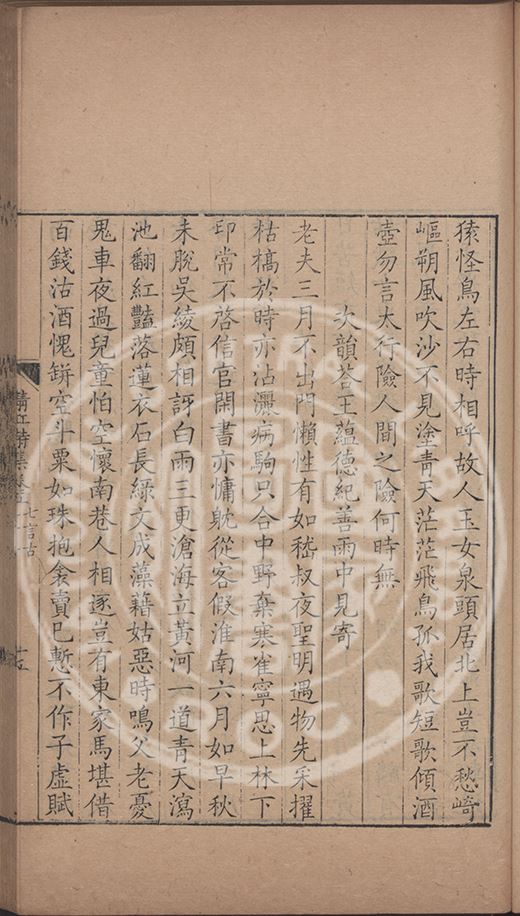 猿怪鳥左右時相呼故人玉女泉頭居北上豈不愁﨑
嶇朔風吹沙不見塗青天茫茫飛鳥孤我歌短歌傾酒
壺勿言太行險人間之險何時無
次韻荅王蘊德紀善雨中見寄
老夫三月不出門懶性有如嵇叔夜聖明遇物先采擢
枯槁於時亦沾灑病駒只合中野棄寒雀寧思上林下
印常不啓信官閑書亦慵躭從客假淮南六月如早秋
未脫吳綾頗相訝白雨三更滄海立黃河一道青天瀉
池翻紅豔落蓮衣石長綠文成藻藉姑惡時鳴父老憂
鬼車夜過兒童怕空懷南巷人相逐豈有東家馬堪借
百錢沽酒愧缾空斗粟如珠抱衾賣已慙不作子虛賦
清江詩集卷 七言古